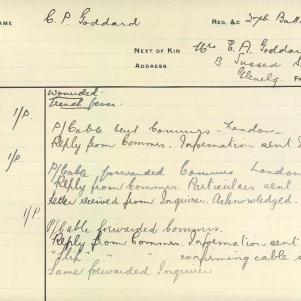 NAME C. P. Goddard REG. &c 27th Batt
NEXT OF KIN Mrs E. A. Goddard
ADDRESS 13 Sussex S
Glenelg.
Wounded.
Trench fever.
1/P. P/Cable sent Commrs. London
Reply from Commrs. Information sent
1/P. P/Cable forwarded Commrs London
Reply from Commrs. Particulars sent
Letter received from Inquirer. Acknowledged.
1/P. P/Cable forwarded Commrs.
Reply from Commrs. Information sent
"Slip" " " confirming cable
Same forwarded Inquirer